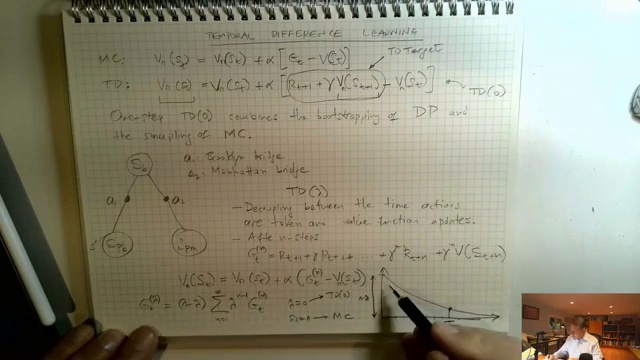 TEMPORAL DIFFERENCE LEARNING
MC: Vπ(St) = Vπ(St) + α [Gt - V(St)]
TD Target
TD: Vπ(St) = Vπ(St) + α [Rt+1 + γ Vπ(St+1) - Vπ(St)]
TD(0)
One-step TD(0) combines the bootstrapping of DP and
the sampling of MC.
a1: Brooklyn bridge
a2: Manhattan bridge
S6
a1
a2
TD(λ)
- Decoupling between the time actions
are taken and value function updates.
- After n-steps
Gt(n) = Rt+1 + γ Rt+2 + ... + γ Rt+n + γⁿ V(St+n)
Vπ(St) = Vπ(St) + α (Gt(n) - Vπ(St))
λ=0 → TD(0)
→ MC